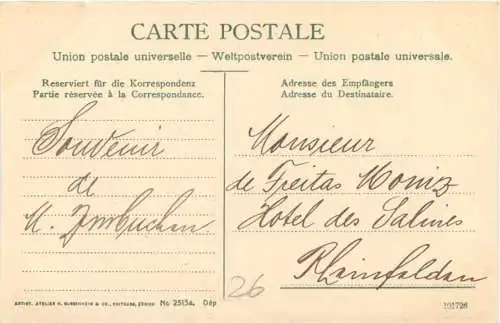 CARTE POSTALE
Union postale universelle — Weltpostverein — Union postale universale.
Reserviert für die Korrespondenz
Partie réservée à la Correspondance.
Adresse des Empfängers
Adresse du Destinataire.
Souvenir
de
Monsieur
de Freitas Moniz
Hotel des Salines
Rheinfelden
26
ARTIST. ATELIER H. GUGGENHEIM & CO., EDITEURS, ZÜRICH No 2513a. Dép
101726